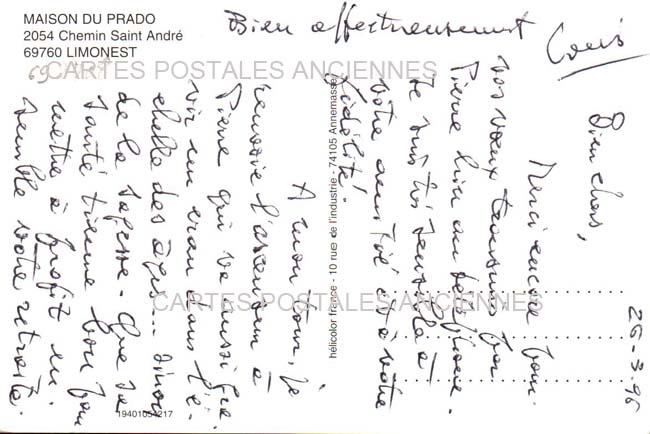 MAISON DU PRADO
2054 Chemin Saint André
69760 LIMONEST
69
CARTES POSTALES ANCIENNES
CARTES POSTALES ANCIENNES
hélicolor france - 10 rue de l'industrie - 74105 Annemasse
19401054217
26-3-96
Bien chers,
Merci encore pour
vos vœux transmis par
Pierre hier au téléphone.
Je suis très sensible à
votre amitié et à votre
fidélité!
A mon tour, je
renvoie l'ascenseur à
Pierre qui va aussi gra-
vir un cran dans l'é-
chelle des âges... sinon
de la sagesse - Que sa
santé tienne bon pour
mettre à profit en-
semble votre retraite.
Bien affectueusement